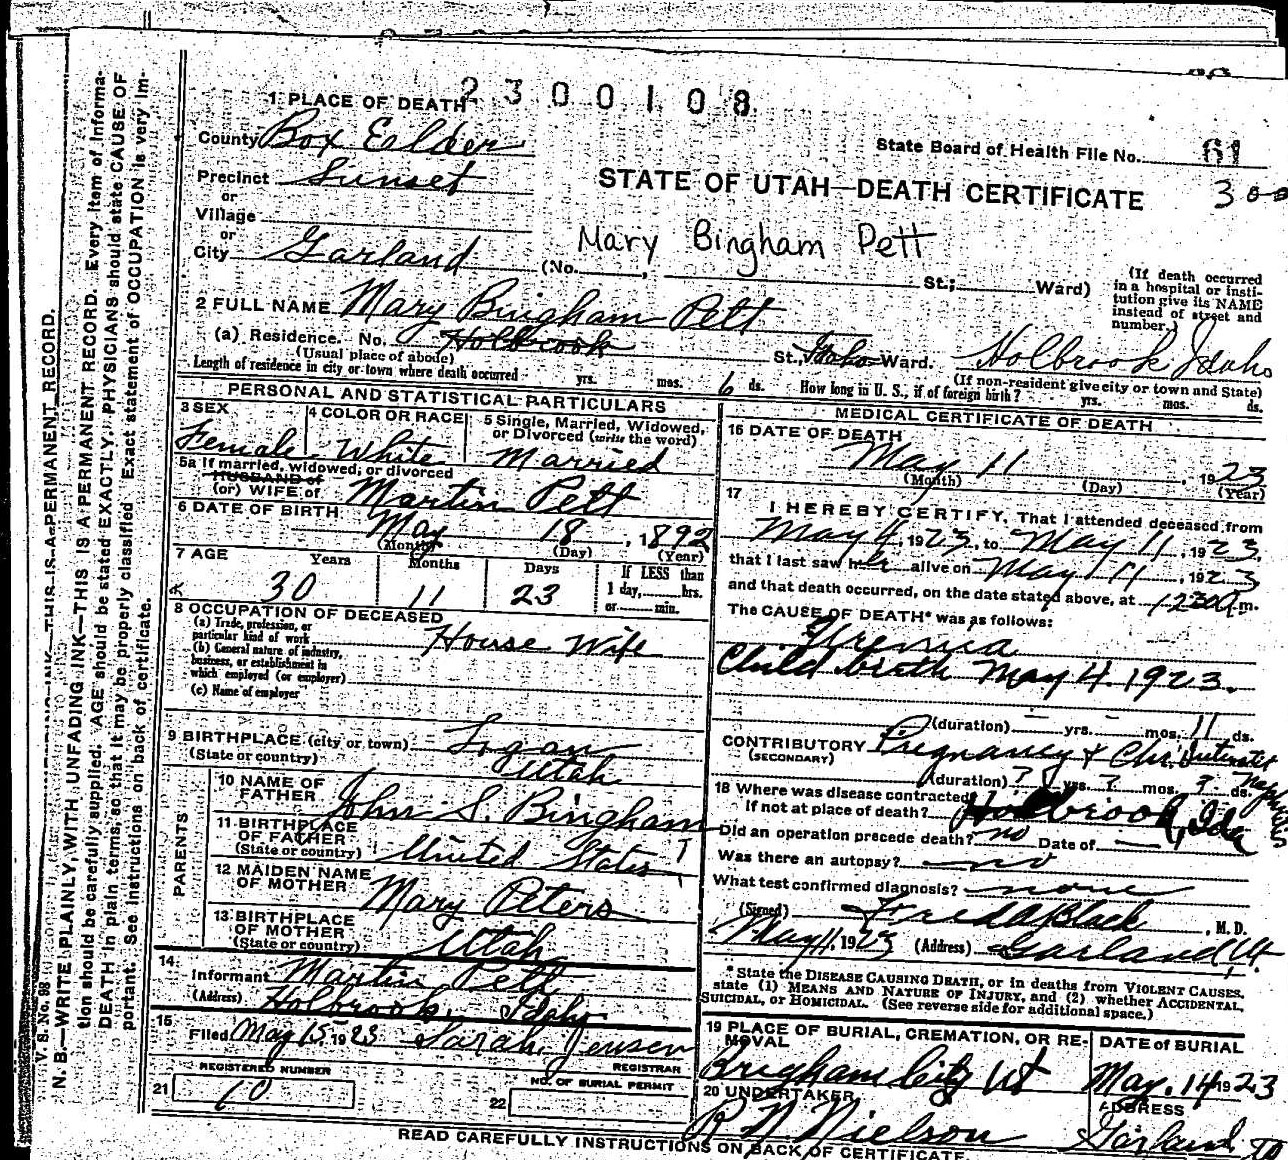 2300108
1 PLACE OF DEATH
County Box Eelder
State Board of Health File No. 61
300
Precinct Sunset
or
Village
or
City Garland (No. , St.; Ward)
STATE OF UTAH—DEATH CERTIFICATE
Mary Bingham Pett
(If death occurred
in a hospital or insti-
tution give its NAME
instead of street and
number.)
2 FULL NAME Mary Bingham Pett
(a) Residence. No. Holbrook St. Idaho Ward. Holbrook Idaho
(Usual place of abode) (If non-resident give city or town and State)
Length of residence in city or town where death occurred yrs. mos. 6 ds. How long in U. S., if of foreign birth? yrs. mos. ds.
PERSONAL AND STATISTICAL PARTICULARS
3 SEX
Female
4 COLOR OR RACE
White
5 Single, Married, Widowed,
or Divorced (write the word)
Married
5a If married, widowed, or divorced
HUSBAND of
(or) WIFE of Martin Pett
6 DATE OF BIRTH
May 18, 1892
(Month) (Day) (Year)
7 AGE
Years Months Days
30 11 23
If LESS than
1 day, hrs.
or min.
8 OCCUPATION OF DECEASED
(a) Trade, profession, or
particular kind of work House Wife
(b) General nature of industry,
business, or establishment in
which employed (or employer)
(c) Name of employer
9 BIRTHPLACE (city or town) Logan
(State or country) Utah
PARENTS
10 NAME OF
FATHER John S. Bingham
11 BIRTHPLACE
OF FATHER
(State or country) United States
12 MAIDEN NAME
OF MOTHER Mary Peters
13 BIRTHPLACE
OF MOTHER
(State or country) Utah
14.
Informant Martin Pett
(Address) Holbrook, Idaho
15
Filed May 15 1923 Sarah Jensen
REGISTRAR
REGISTERED NUMBER
21 10
NO. OF BURIAL PERMIT
22
MEDICAL CERTIFICATE OF DEATH
16 DATE OF DEATH
May 11, 1923
(Month) (Day) (Year)
17
I HEREBY CERTIFY, That I attended deceased from
May 4, 1923, to May 11, 1923.
that I last saw her alive on May 11, 1923
and that death occurred, on the date stated above, at 1230A m.
The CAUSE OF DEATH* was as follows:
Uremia
Child birth May 4. 1923.
(duration) yrs. mos. 11 ds.
CONTRIBUTORY Pregnancy & Chr. Nephritis
(SECONDARY)
(duration) ? yrs. ? mos. ? ds.
18 Where was disease contracted
If not at place of death? Holbrook, Ida
Did an operation precede death? no Date of
Was there an autopsy? no
What test confirmed diagnosis? none
(Signed) Fred A Black, M. D.
May 11, 1923 (Address) Garland, Ut.
* State the DISEASE CAUSING DEATH, or in deaths from VIOLENT CAUSES,
state (1) MEANS AND NATURE OF INJURY, and (2) whether ACCIDENTAL,
SUICIDAL, or HOMICIDAL. (See reverse side for additional space.)
19 PLACE OF BURIAL, CREMATION, OR RE-
MOVAL
Brigham City Ut
DATE of BURIAL
May. 14 1923
20 UNDERTAKER
R N Nielson
ADDRESS
Garland
READ CAREFULLY INSTRUCTIONS ON BACK OF CERTIFICATE
V. S. No. 98
THIS IS A PERMANENT RECORD.
N. B.—WRITE PLAINLY, WITH UNFADING INK—THIS IS A PERMANENT RECORD. Every item of informa-
tion should be carefully supplied. AGE should be stated EXACTLY. PHYSICIANS should state CAUSE OF
DEATH in plain terms, so that it may be properly classified. Exact statement of OCCUPATION is very im-
portant. See instructions on back of certificate.